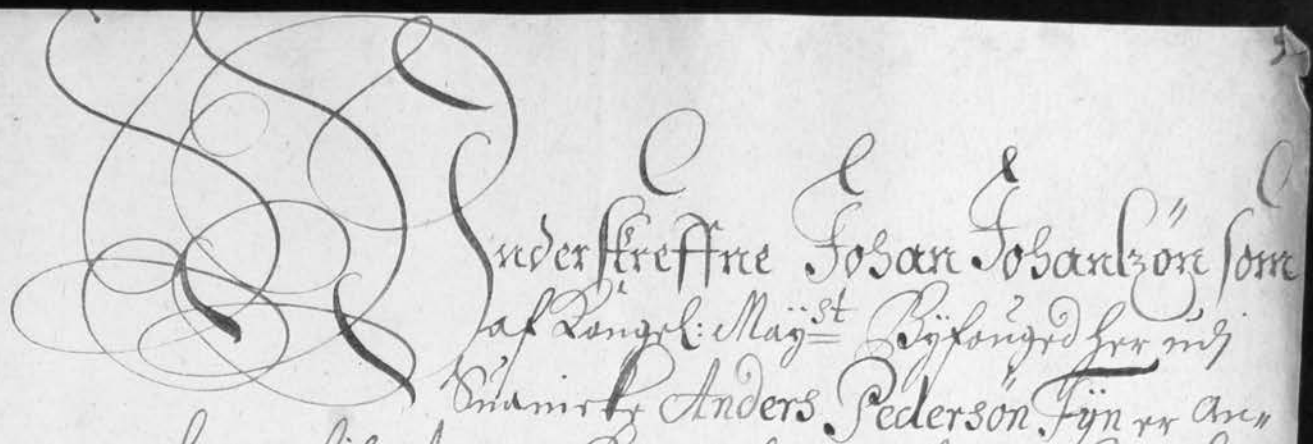 Underskreffne Johan Johanszøn som
af Kongel: Mayst Byfouged her udj
Suanicke Anders Pedersøn Fÿn er An=